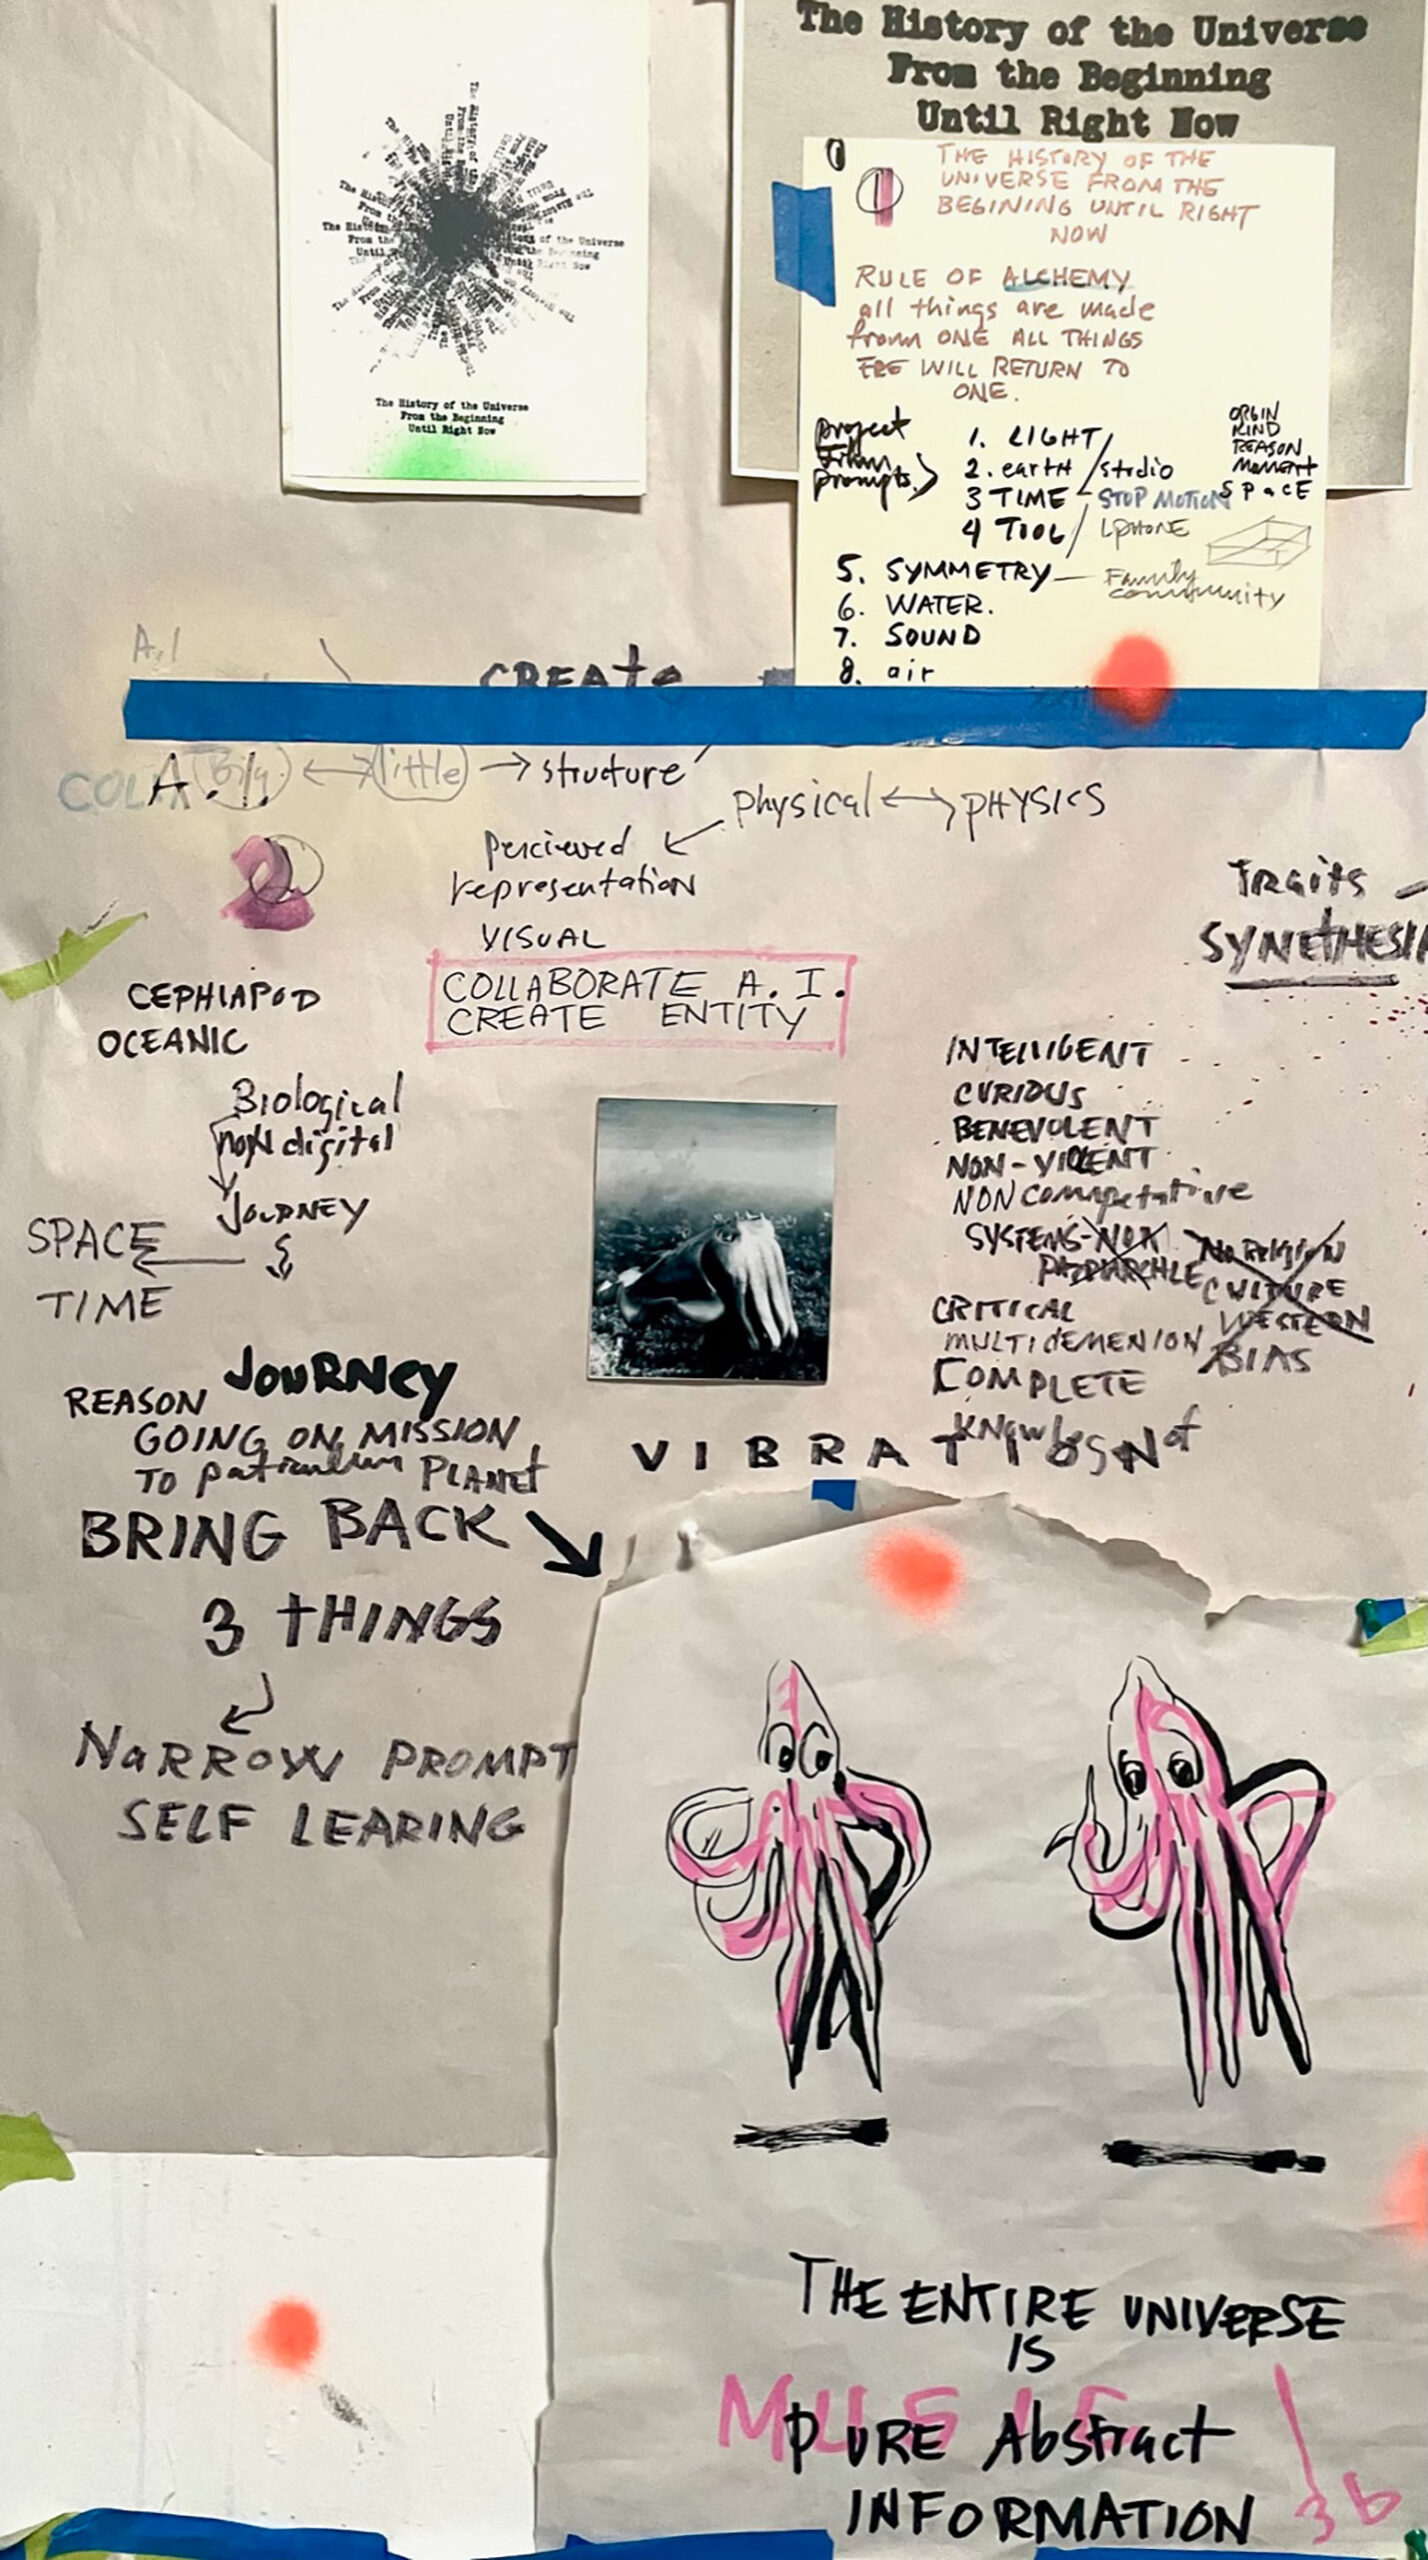 The History of the Universe
From the Beginning
Until Right Now
The History of the Universe
From the Beginning
Until Right Now
1
THE HISTORY OF THE
UNIVERSE FROM THE
BEGINING UNTIL RIGHT
NOW
RULE OF ALCHEMY
all things are made
from ONE ALL THINGS
WILL RETURN TO
ONE.
project
prompts.
1. LIGHT
2. earth
3 TIME
4 TOOL
studio
STOP MOTION
PHONE
ORGIN
KIND
REASON
Moment
SPaCE
5. SYMMETRY
Family
community
6. WATER.
7. SOUND
8. air
A.I
CREATE
A.I.
Big
little
structure
physical
PHYSICS
percieved
representation
VISUAL
2
COLLABORATE A.I.
CREATE ENTITY
TRaits
SYNETHESI
CEPHLAPOD
OCEANIC
Biological
non digital
JOURNEY
SPACE
TIME
INTELLIGENT
CURIOUS
BENEVOLENT
NON-VIOLENT
NON Competative
SYSTEMS-NON
No Religion
CULTURE
WESTERN
BIAS
CRITICAL
MULTIDEMENION
COMPLETE
of
VIBRATION
JOURNEY
REASON
GOING ON MISSION
TO PLANET
BRING BACK
3 THINGS
NARROW PROMPT
SELF LEARING
THE ENTIRE UNIVERSE
IS
MUSIC
PURE Abstract
INFORMATION
3b